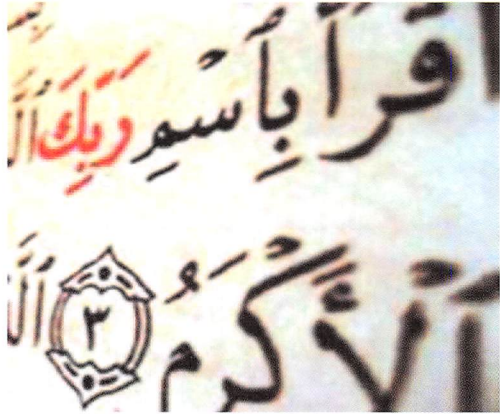 ٱقْرَأْ بِٱسْمِ رَبِّكَ
ٱلْأَكْرَمُ ٣